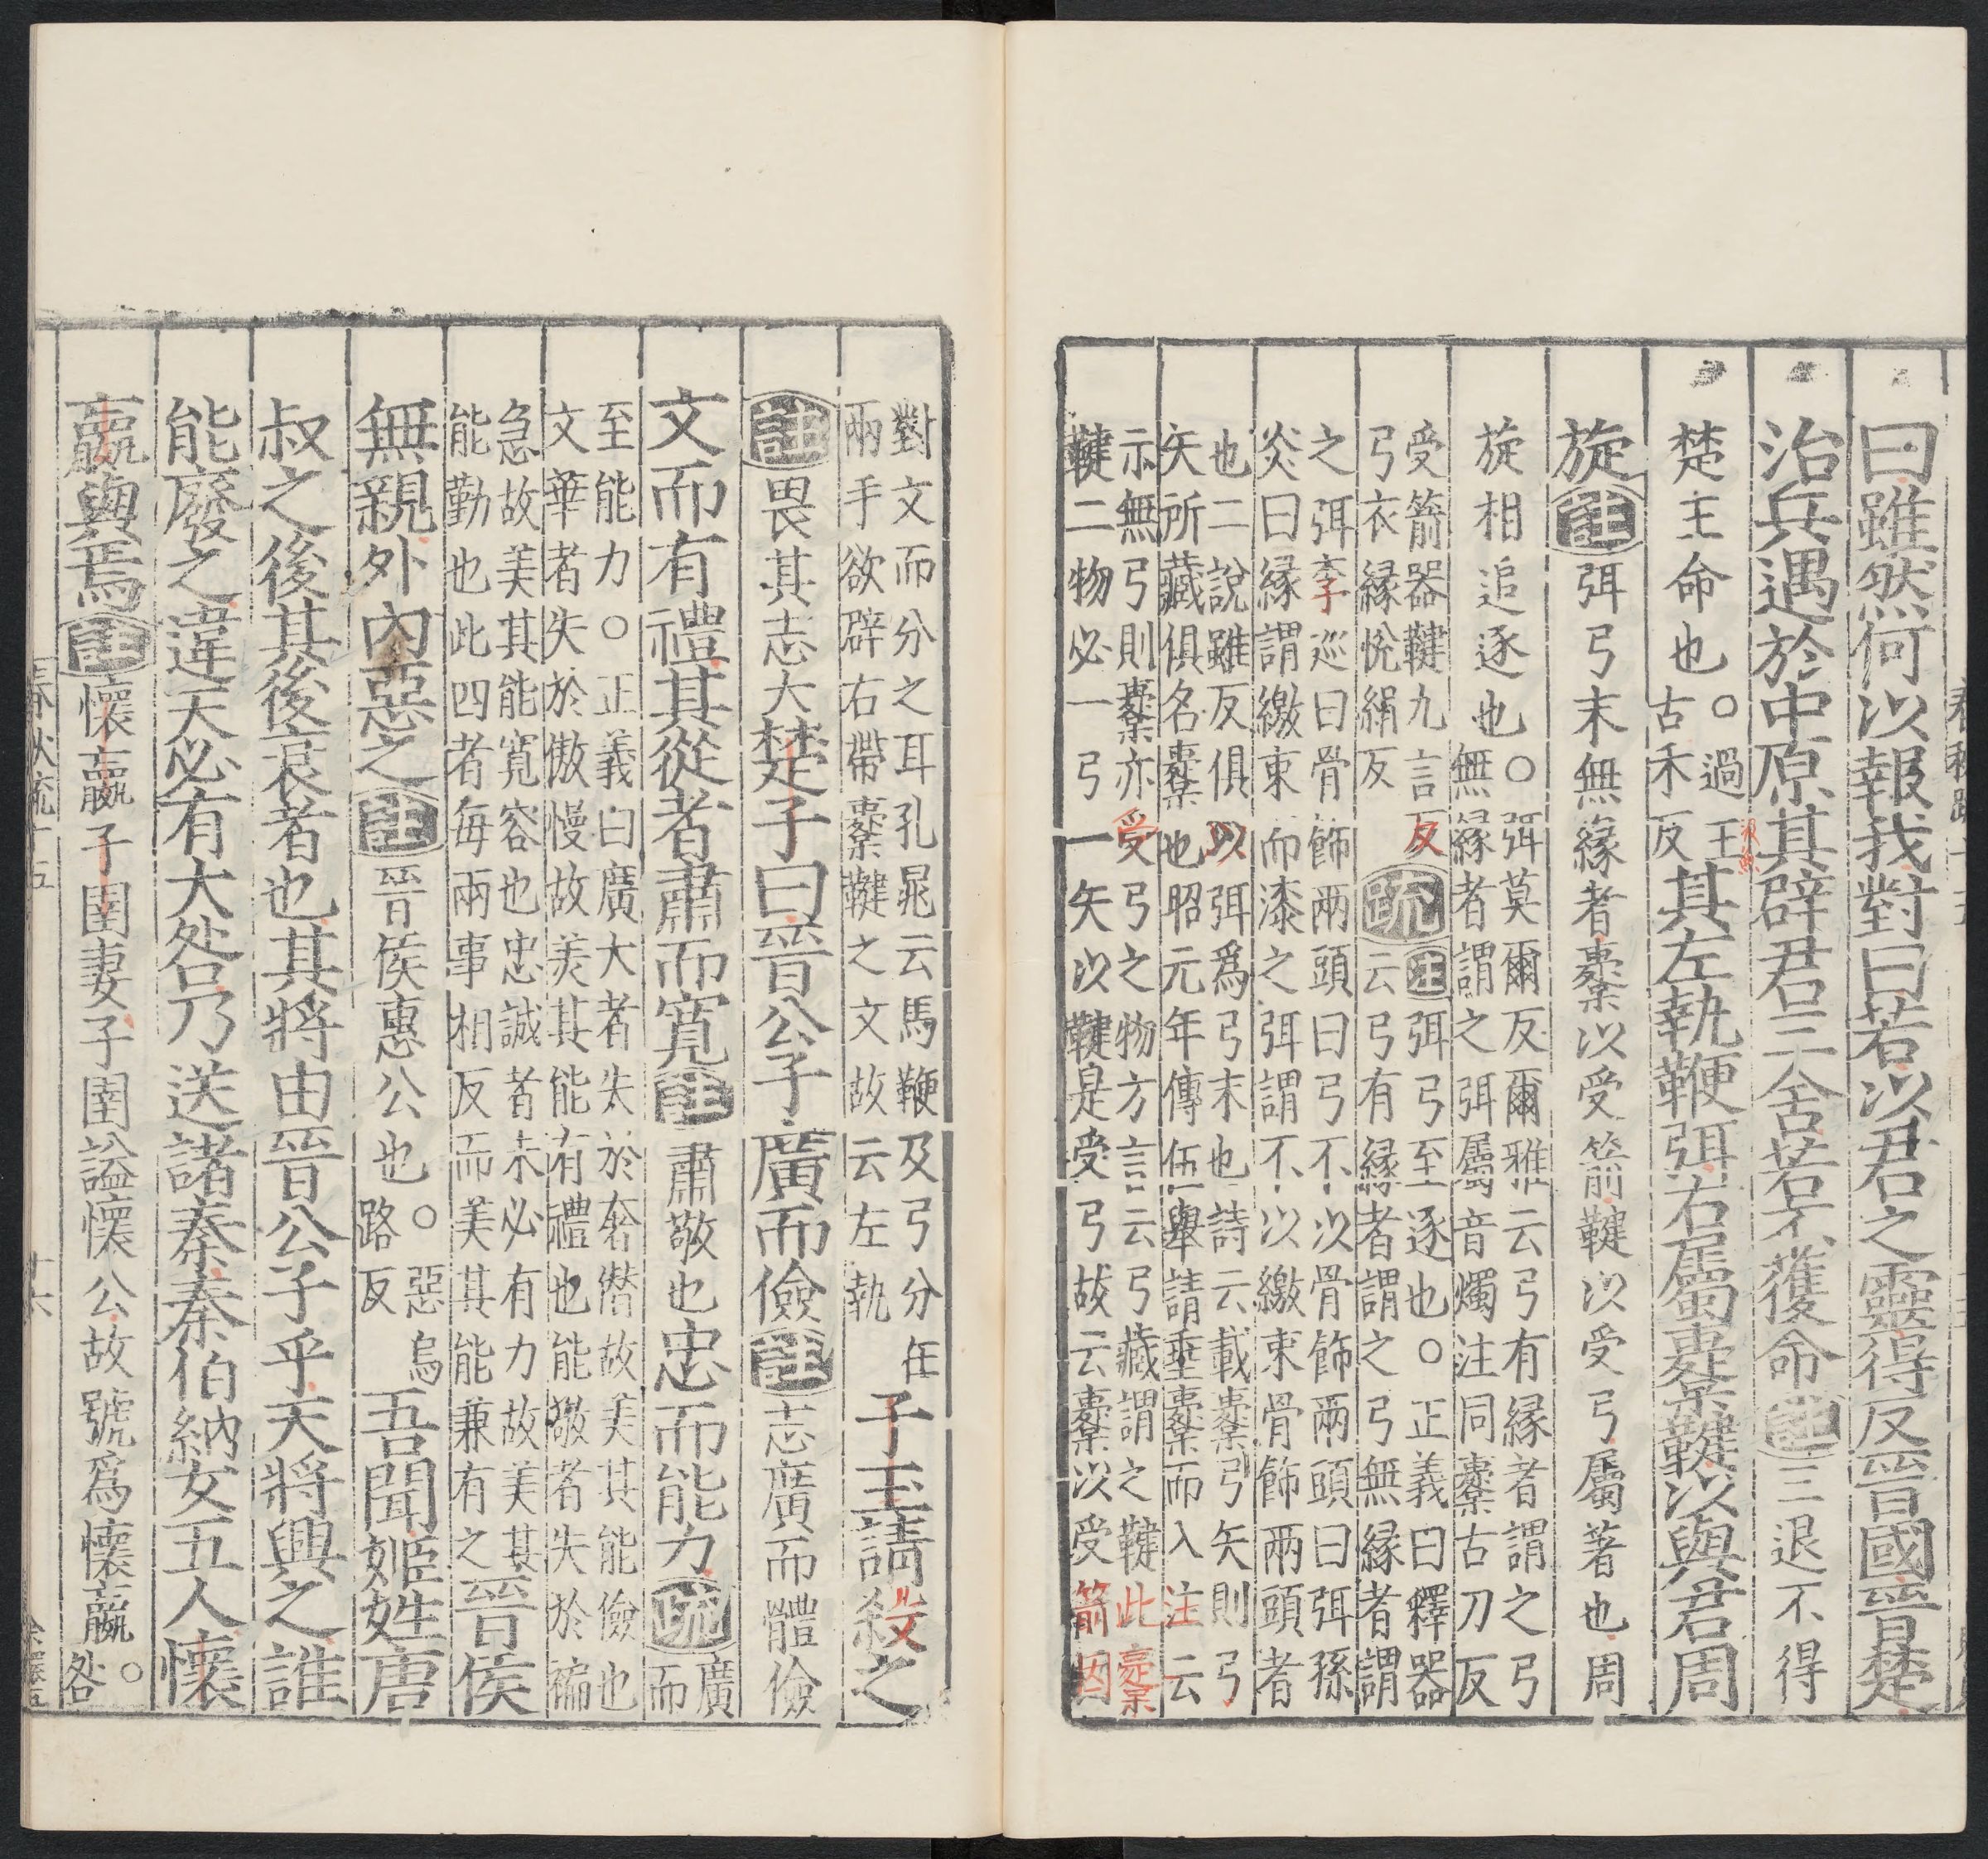 曰雖然何以報我對曰若以君之靈得反晉國晉楚
治兵遇於中原其辟君三舍若不獲命註三退不得
楚王命也○過
古禾反
其左執鞭弭右屬櫜鞬以與君周
旋註弭弓末無緣者櫜以受箭鞬以受弓屬著也周
旋相追逐也○弭莫爾反爾雅云弓有緣者謂之弓
無緣者謂之弭屬音燭注同櫜古刀反
受箭器鞬九言反
弓衣緣悅絹反
疏註弭弓至逐也○正義曰釋器
云弓有緣者謂之弓無緣者謂
之弭李巡曰骨飾兩頭曰弓不以骨飾兩頭曰弭孫
炎曰緣謂繳束而漆之弭謂不以繳束骨飾兩頭者
也二說雖反俱以弭爲弓末也詩云載櫜弓矢則弓
矢所藏俱名櫜也昭元年傳伍舉請垂櫜而入注云
示無弓則櫜亦受弓之物方言云弓藏謂之鞬此櫜
鞬二物必一弓一矢以鞬是受弓故云櫜以受箭因
對文而分之耳孔晁云馬鞭及弓分在
兩手欲辟右帶櫜鞬之文故云左執
子玉請殺之
註畏其志大楚子曰晉公子廣而儉註志廣而體儉
文而有禮其從者肅而寬註肅敬也忠而能力疏廣
而
至能力○正義曰廣大者失於奢僭故美其能儉也
文華者失於傲慢故美其能有禮也能敬者失於褊
急故美其能寬容也忠誠者未必有力故美其
能勤也此四者每兩事相反而美其能兼有之
晉侯
無親外內惡之註晉侯惠公也○惡烏
路反
吾聞姬姓唐
叔之後其後衰者也其將由晉公子乎天將興之誰
能廢之違天必有大咎乃送諸秦秦伯納女五人懷
嬴與焉註懷嬴子圉妻子圉謚懷公故號爲懷嬴○
咎